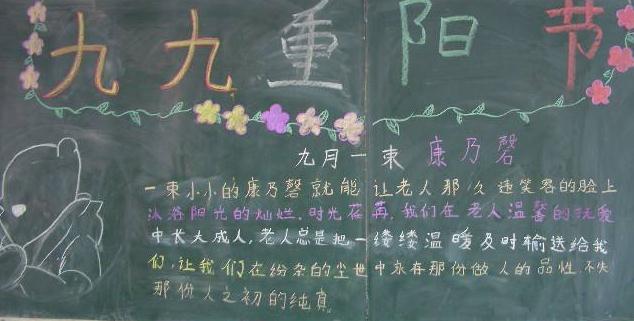 九九重阳节
九月一束 康乃磬
一束小小的康乃磬就能让老人那久违笑容的脸上
沐浴阳光的灿烂。时光荏苒,我们在老人温馨的抚爱
中长大成人,老人总是把一缕缕温暖及时输送给我
们,让我们在纷杂的尘世中永存那份做人的品性不失
那份人之初的纯真